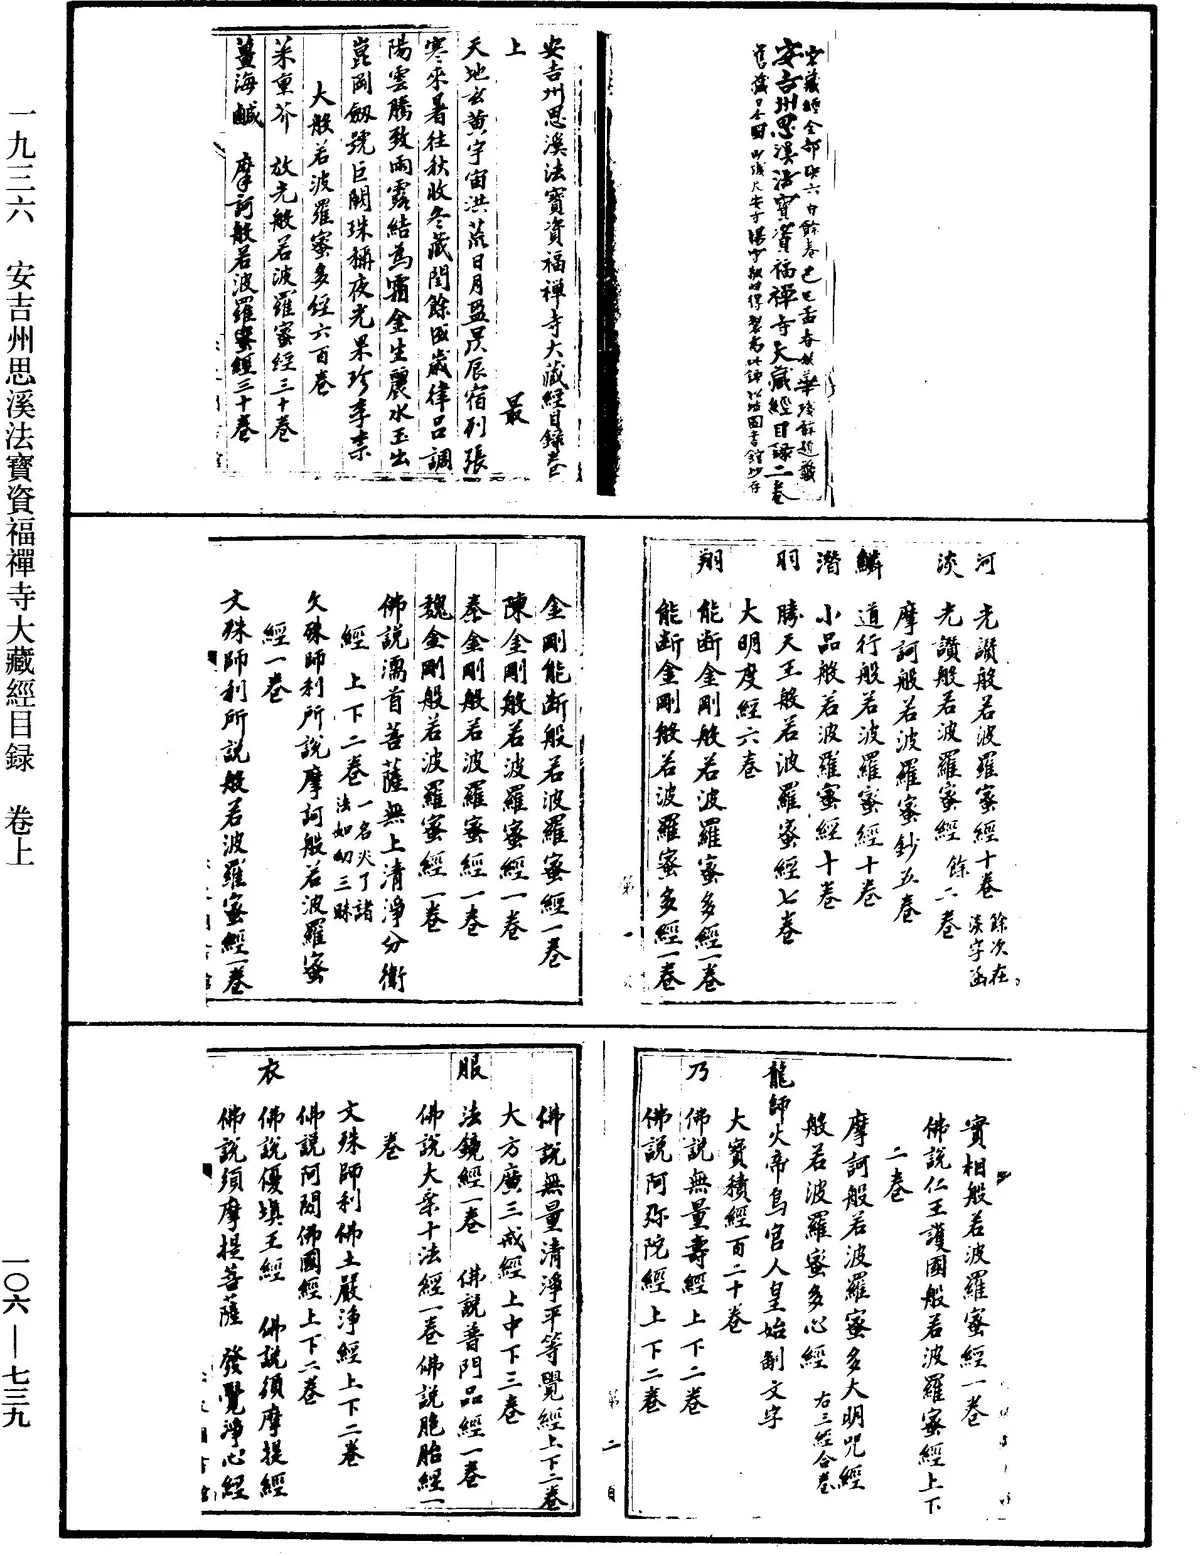 一九三六　安吉州思溪法寶資福禪寺大藏經目録　卷上
一〇六—七三九
安吉州思溪法寶資福禪寺大藏經目録二卷
安吉州思溪法寶資福禪寺大藏經目録卷
上　最
天地玄黄宇宙洪荒日月盈昃辰宿列張
寒來暑往秋收冬藏閏餘成歲律吕調
陽雲騰致雨露結為霜金生麗水玉出
崑岡劔號巨闕珠稱夜光果珍李柰
大般若波羅蜜多經六百卷
菜重芥　放光般若波羅蜜經三十卷
薑海鹹　摩訶般若波羅蜜經三十卷
河　光讚般若波羅蜜經十卷 餘次在淡字函
淡　光讚般若波羅蜜經　餘二卷
摩訶般若波羅蜜鈔五卷
鱗　道行般若波羅蜜經十卷
潛　小品般若波羅蜜經十卷
羽　勝天王般若波羅蜜經七卷
大明度經六卷
翔　能断金剛般若波羅蜜多經一卷
能断金剛般若波羅蜜多經一卷
第一
金剛能断般若波羅蜜經一卷
陳金剛般若波羅蜜經一卷
秦金剛般若波羅蜜經一卷
魏金剛般若波羅蜜經一卷
佛説濡首菩薩無上清淨分衛
經　上下二卷 一名决了諸法如幻三昧
文殊師利所説摩訶般若波羅蜜
經一卷
文殊師利所説般若波羅蜜經一卷
實相般若波羅蜜經一卷
佛説仁王護國般若波羅蜜經上下
二卷
摩訶般若波羅蜜多大明咒經
般若波羅蜜多心經　右三經合卷
龍師火帝鳥官人皇始制文字
大寶積經百二十卷
乃　佛説無量壽經上下二卷
佛説阿弥陀經上下二卷
第二頁
佛説無量清淨平等覺經上下二卷
大方廣三戒經上中下三卷
服　法鏡經一卷　佛説普門品經一卷
佛説大乘十法經一卷佛説胞胎經一
卷
文殊師利佛土嚴淨經上下二卷
佛説阿閦佛國經上下二卷
衣　佛説優填王經　佛説須摩提經
佛説須摩提菩薩　發覺淨心經